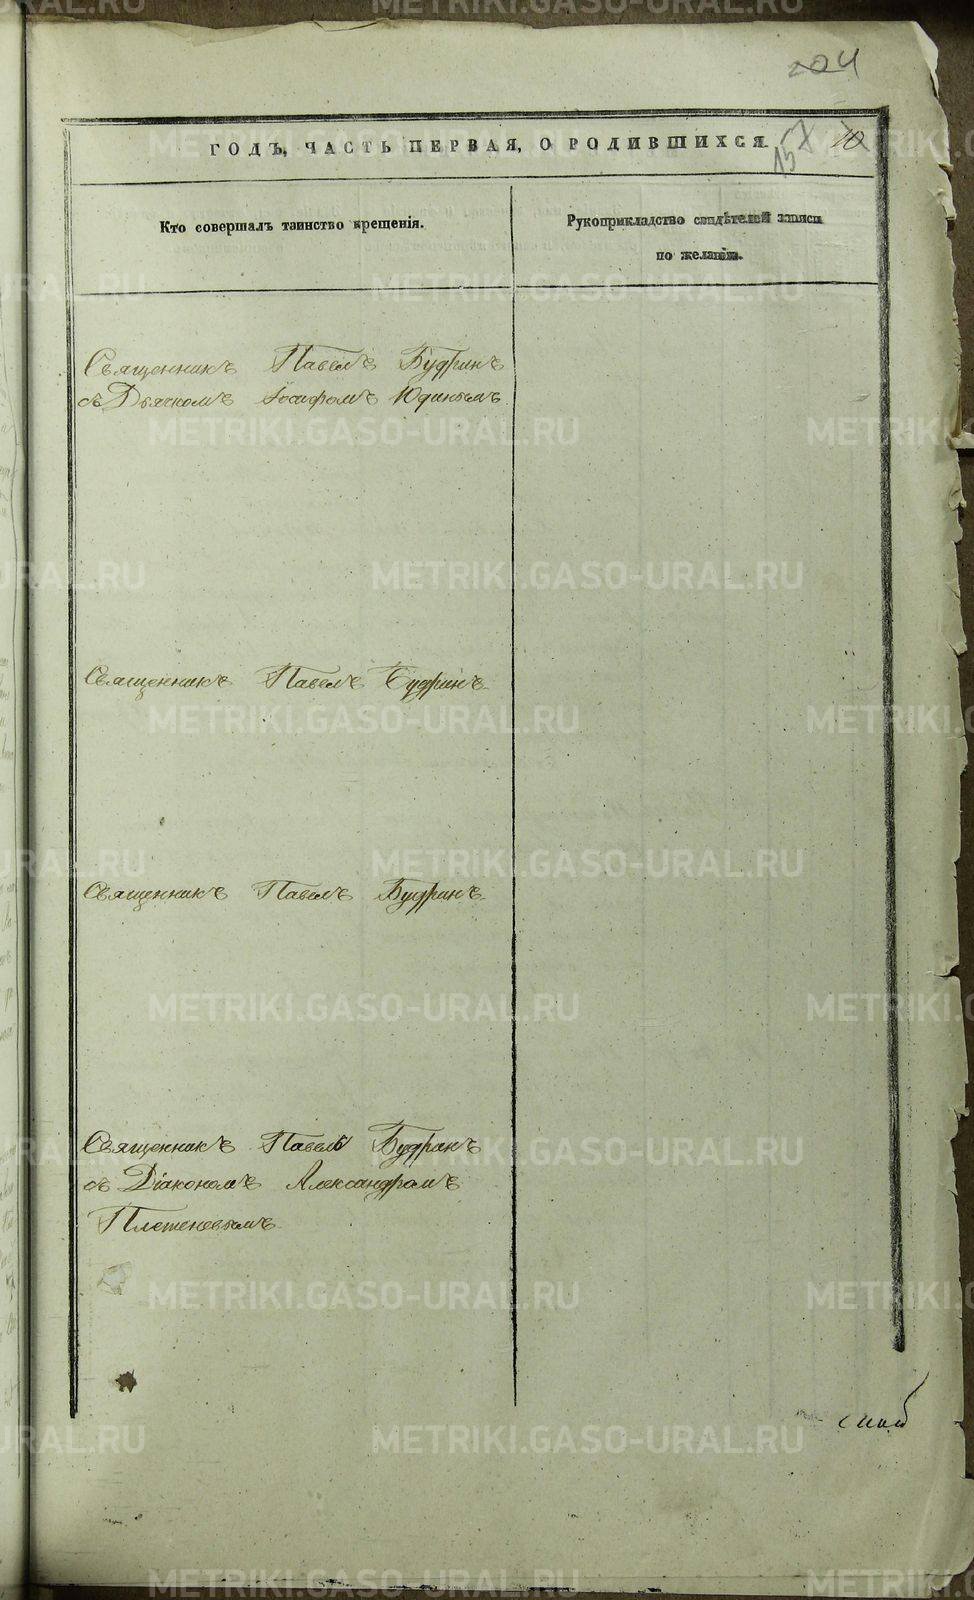 204
ГОДЪ, ЧАСТЬ ПЕРВАЯ, О РОДИВШИХСЯ.
157 10
Кто совершалъ таинство крещенія.
Рукоприкладство свидѣтелей записи
по желанію.
Священникъ Павелъ Будринъ
съ Дьячкомъ Іосифомъ Юдинымъ
Священникъ Павелъ Будринъ
Священникъ Павелъ Будринъ
Священникъ Павелъ Будринъ
съ Діакономъ Александромъ
Плетеневымъ
METRIKI.GASO-URAL.RU